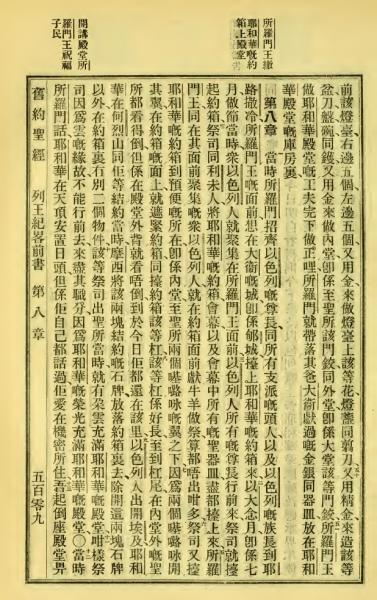 所羅門王擡
耶和華嘅約
箱上殿堂
開講殿堂所
羅門王祝福
子民
前該燈臺右邊五個左邊五個又用金來做燈臺上該等花燈盞同剪刀又用精金來造該等
盆刀盤碗同鑊又用金來做內堂卽係至聖所該門鉸同外堂卽係大堂該等門鉸所羅門王
做耶和華殿堂嘅工夫完下做正哩所羅門就帶落其爸大衞獻過嘅金銀同器皿放在耶和
華殿堂嘅庫房裏
第八章 當時所羅門招齊以色列嘅尊長同所有支派嘅頭人以及以色列嘅族長到耶
路撒冷所羅門王嘅面前想在大衞嘅城卽係郇城擡上耶和華嘅約箱來以大念月卽係七
月做節當時衆以色列人就聚集在所羅門王面前以色列人所有嘅尊長行前來祭司就擡
起約箱祭司同利未人將耶和華嘅約箱會幕以及會幕中所有嘅聖器皿盡都擡上來所羅
門王同在其面前聚集嘅衆以色列人就在約箱面前獻牛羊做祭算都唔出咁多祭司又擡
耶和華嘅約箱到預便嘅所在卽係內堂至聖所兩個嘅翼之下因為兩個開
其翼在約箱嘅面上就遮蒙約箱同擡約箱該等杠該等杠係好長至到杠尾在內堂外嘅聖
所都看得倒但係在殿堂外背就看唔倒到於今日佢都還在該里以色列人出開埃及耶和
華在何烈山同佢等結約當時摩西將該兩塊結約嘅石牌放落約箱裏去除開這兩塊石牌
以外在約箱裏冇別二個物件該等祭司出聖所當時就有朵雲充滿耶和華嘅殿堂咁樣祭
司因為雲嘅緣故不能行前去來盡其職分因為耶和華嘅榮光充滿耶和華嘅殿堂〇當時
所羅門話耶和華在天頂安置日頭但係佢自己都話過佢愛在機密所住吾起倒座殿堂畀
舊約聖經 列王紀畧前書 第八章 五百零九